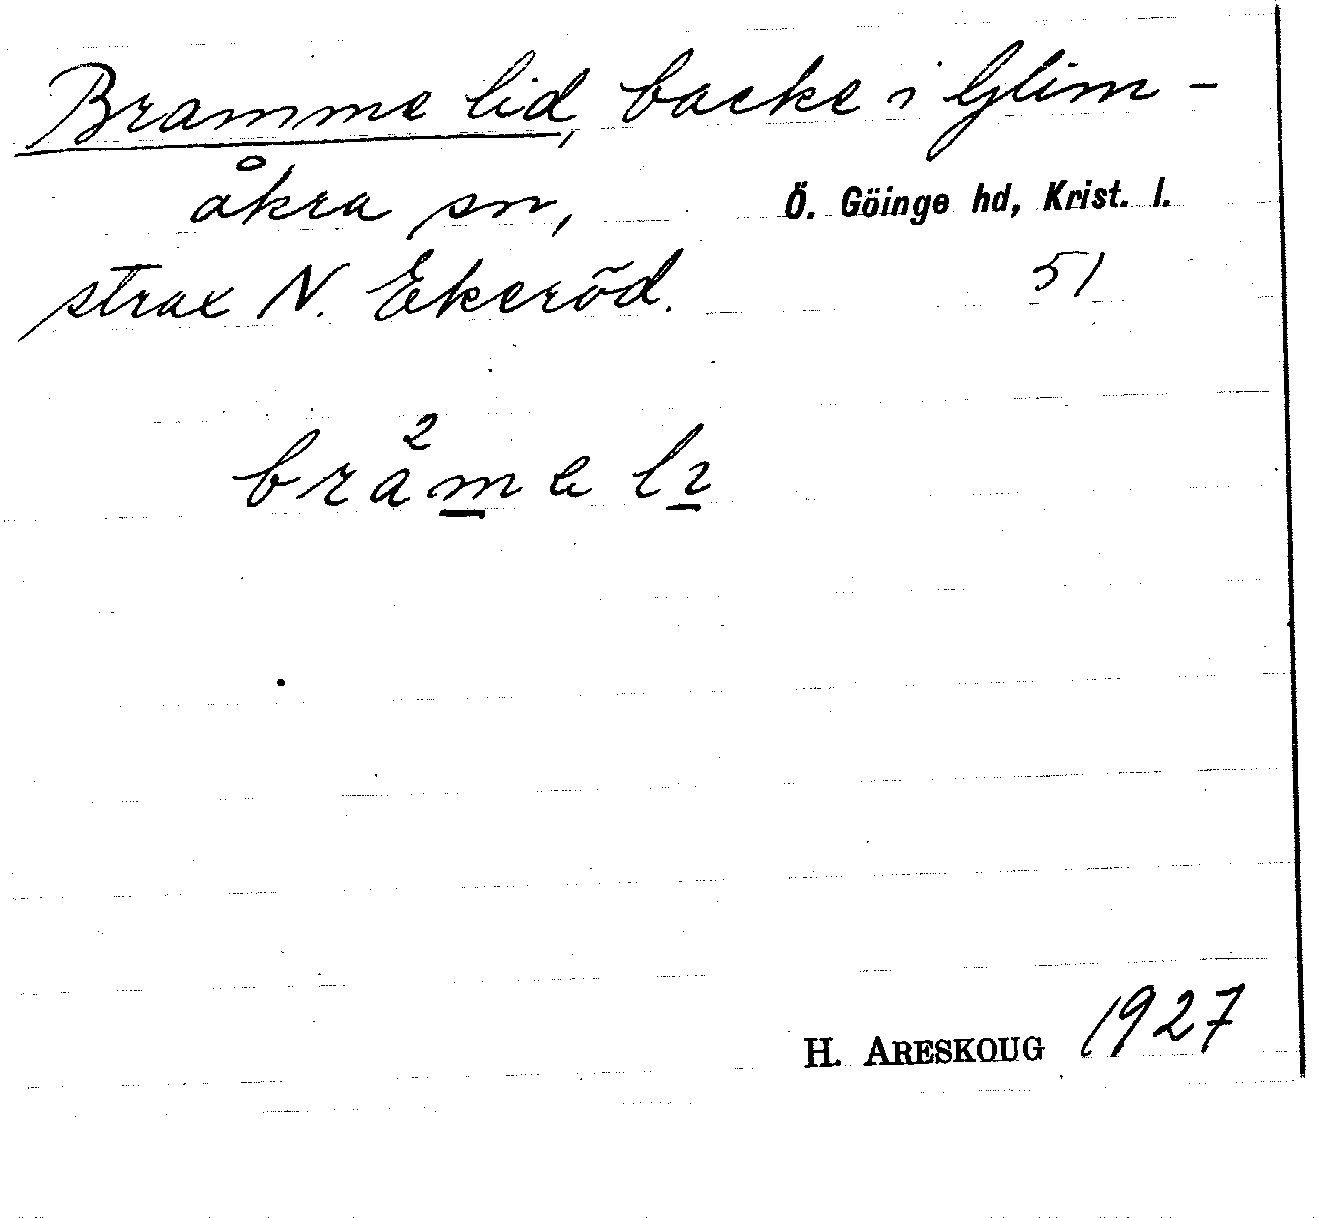 Bramme lid, backe i Glim-
åkra sn, Ö. Göinge hd, Krist. l.
strax N. Ekeröd. 51
H. ARESKOUG 1927